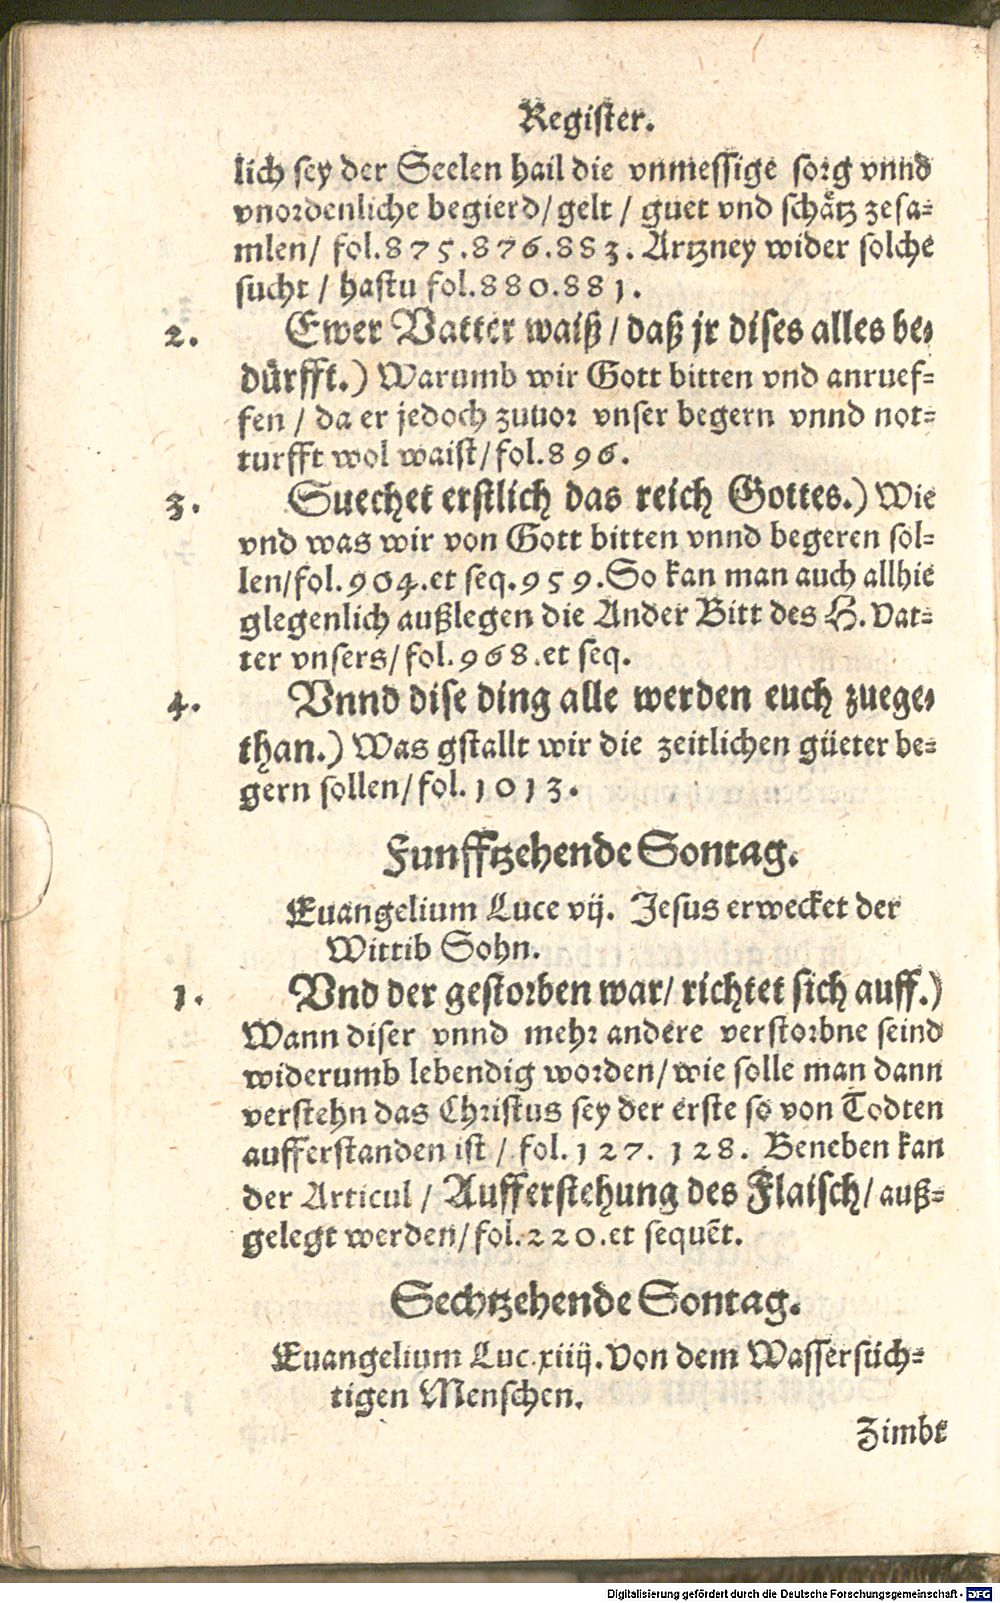 Register.
lich sey der Seelen hail die vnmessige sorg vnnd
vnordenliche begierd/gelt / guet vnd schätz zesa=
mlen/ fol.875.876.883. Artzney wider solche
sucht / hastu fol.880.881.
2. Ewer Vatter waiß / daß jr dises alles be=
dürfft.) Warumb wir Gott bitten vnd anruef=
fen / da er jedoch zuuor vnser begern vnnd not=
turfft wol waist/fol.896.
3. Suechet erstlich das reich Gottes.) Wie
vnd was wir von Gott bitten vnnd begeren sol=
len/fol.904.et seq.959.So kan man auch allhie
glegenlich außlegen die Ander Bitt des H. Vat=
ter vnsers/fol.968.et seq.
4. Vnnd dise ding alle werden euch zuege=
than.) Was gstallt wir die zeitlichen güeter be=
gern sollen/fol.1013.
Funfftzehende Sontag.
Euangelium Luce vij. Jesus erwecket der
Wittib Sohn.
1. Vnd der gestorben war/ richtet sich auff.)
Wann diser vnnd mehr andere verstorbne seind
widerumb lebendig worden/wie solle man dann
verstehn das Christus sey der erste so von Todten
aufferstanden ist / fol.127. 128. Beneben kan
der Articul / Aufferstehung des Flaisch/auß=
gelegt werden/fol.220.et sequēt.
Sechtzehende Sontag.
Euangelium Luc.xiiij.Von dem Wassersüch=
tigen Menschen.
Zimbt
Digitalisierung gefördert durch die Deutsche Forschungsgemeinschaft - DFG